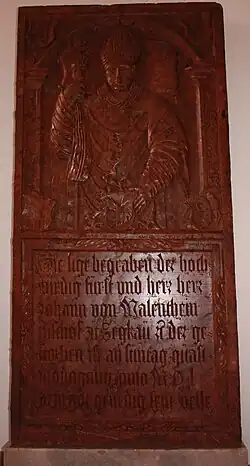 Hie lige begraben der hoch
wirdig fürst und herr herr
Johann von Malenthein
bischof zu Segkau u der ge
storben ist an suntag quasi
modogeniti anno M D L
dem got genedig sein welle